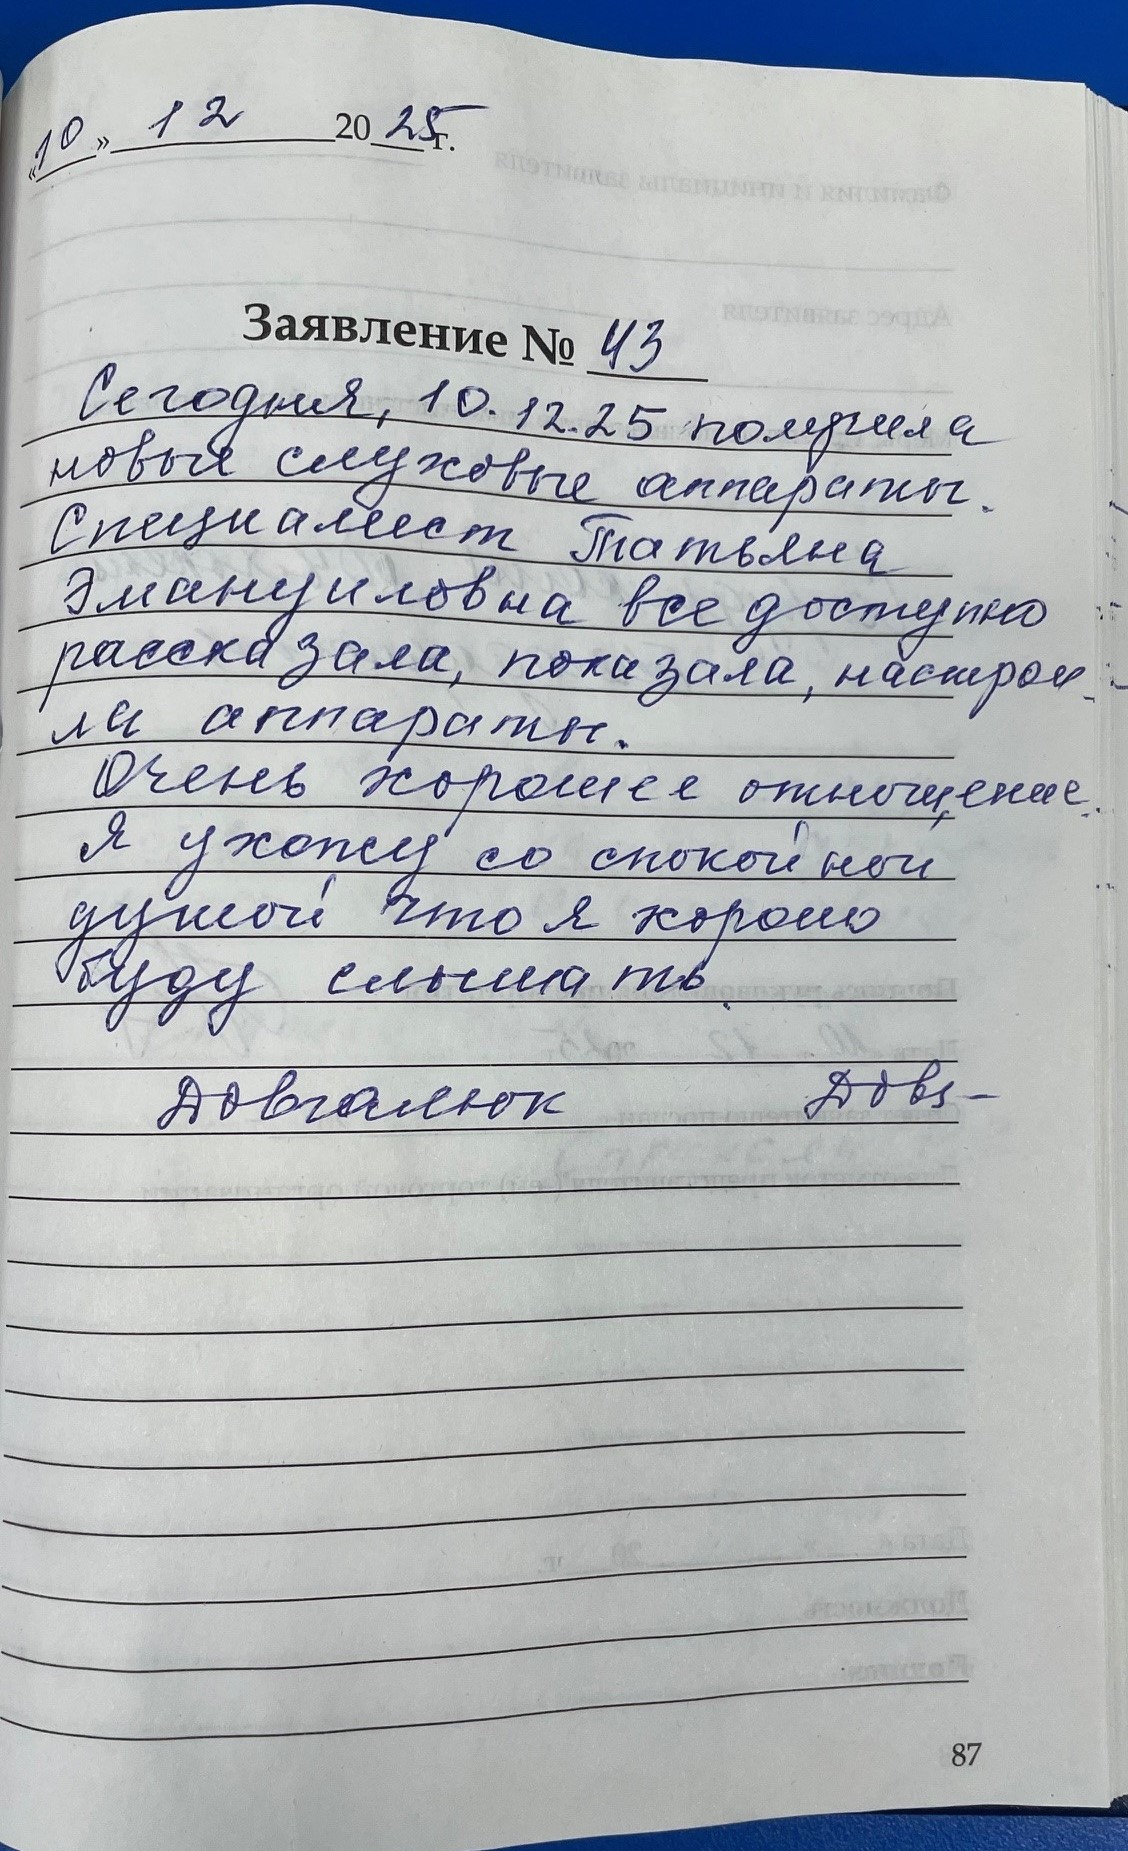 «10» 12 2025г.
Заявление № 43
Сегодня, 10.12.25 получила
новые слуховые аппараты.
Специалист Татьяна
Эмануиловна все доступно
рассказала, показала, настрои-
ла аппараты.
Очень хорошее отношение.
Я ухожу со спокойной
душой что я хорошо
буду слышать.
Довгалюк Довг
87